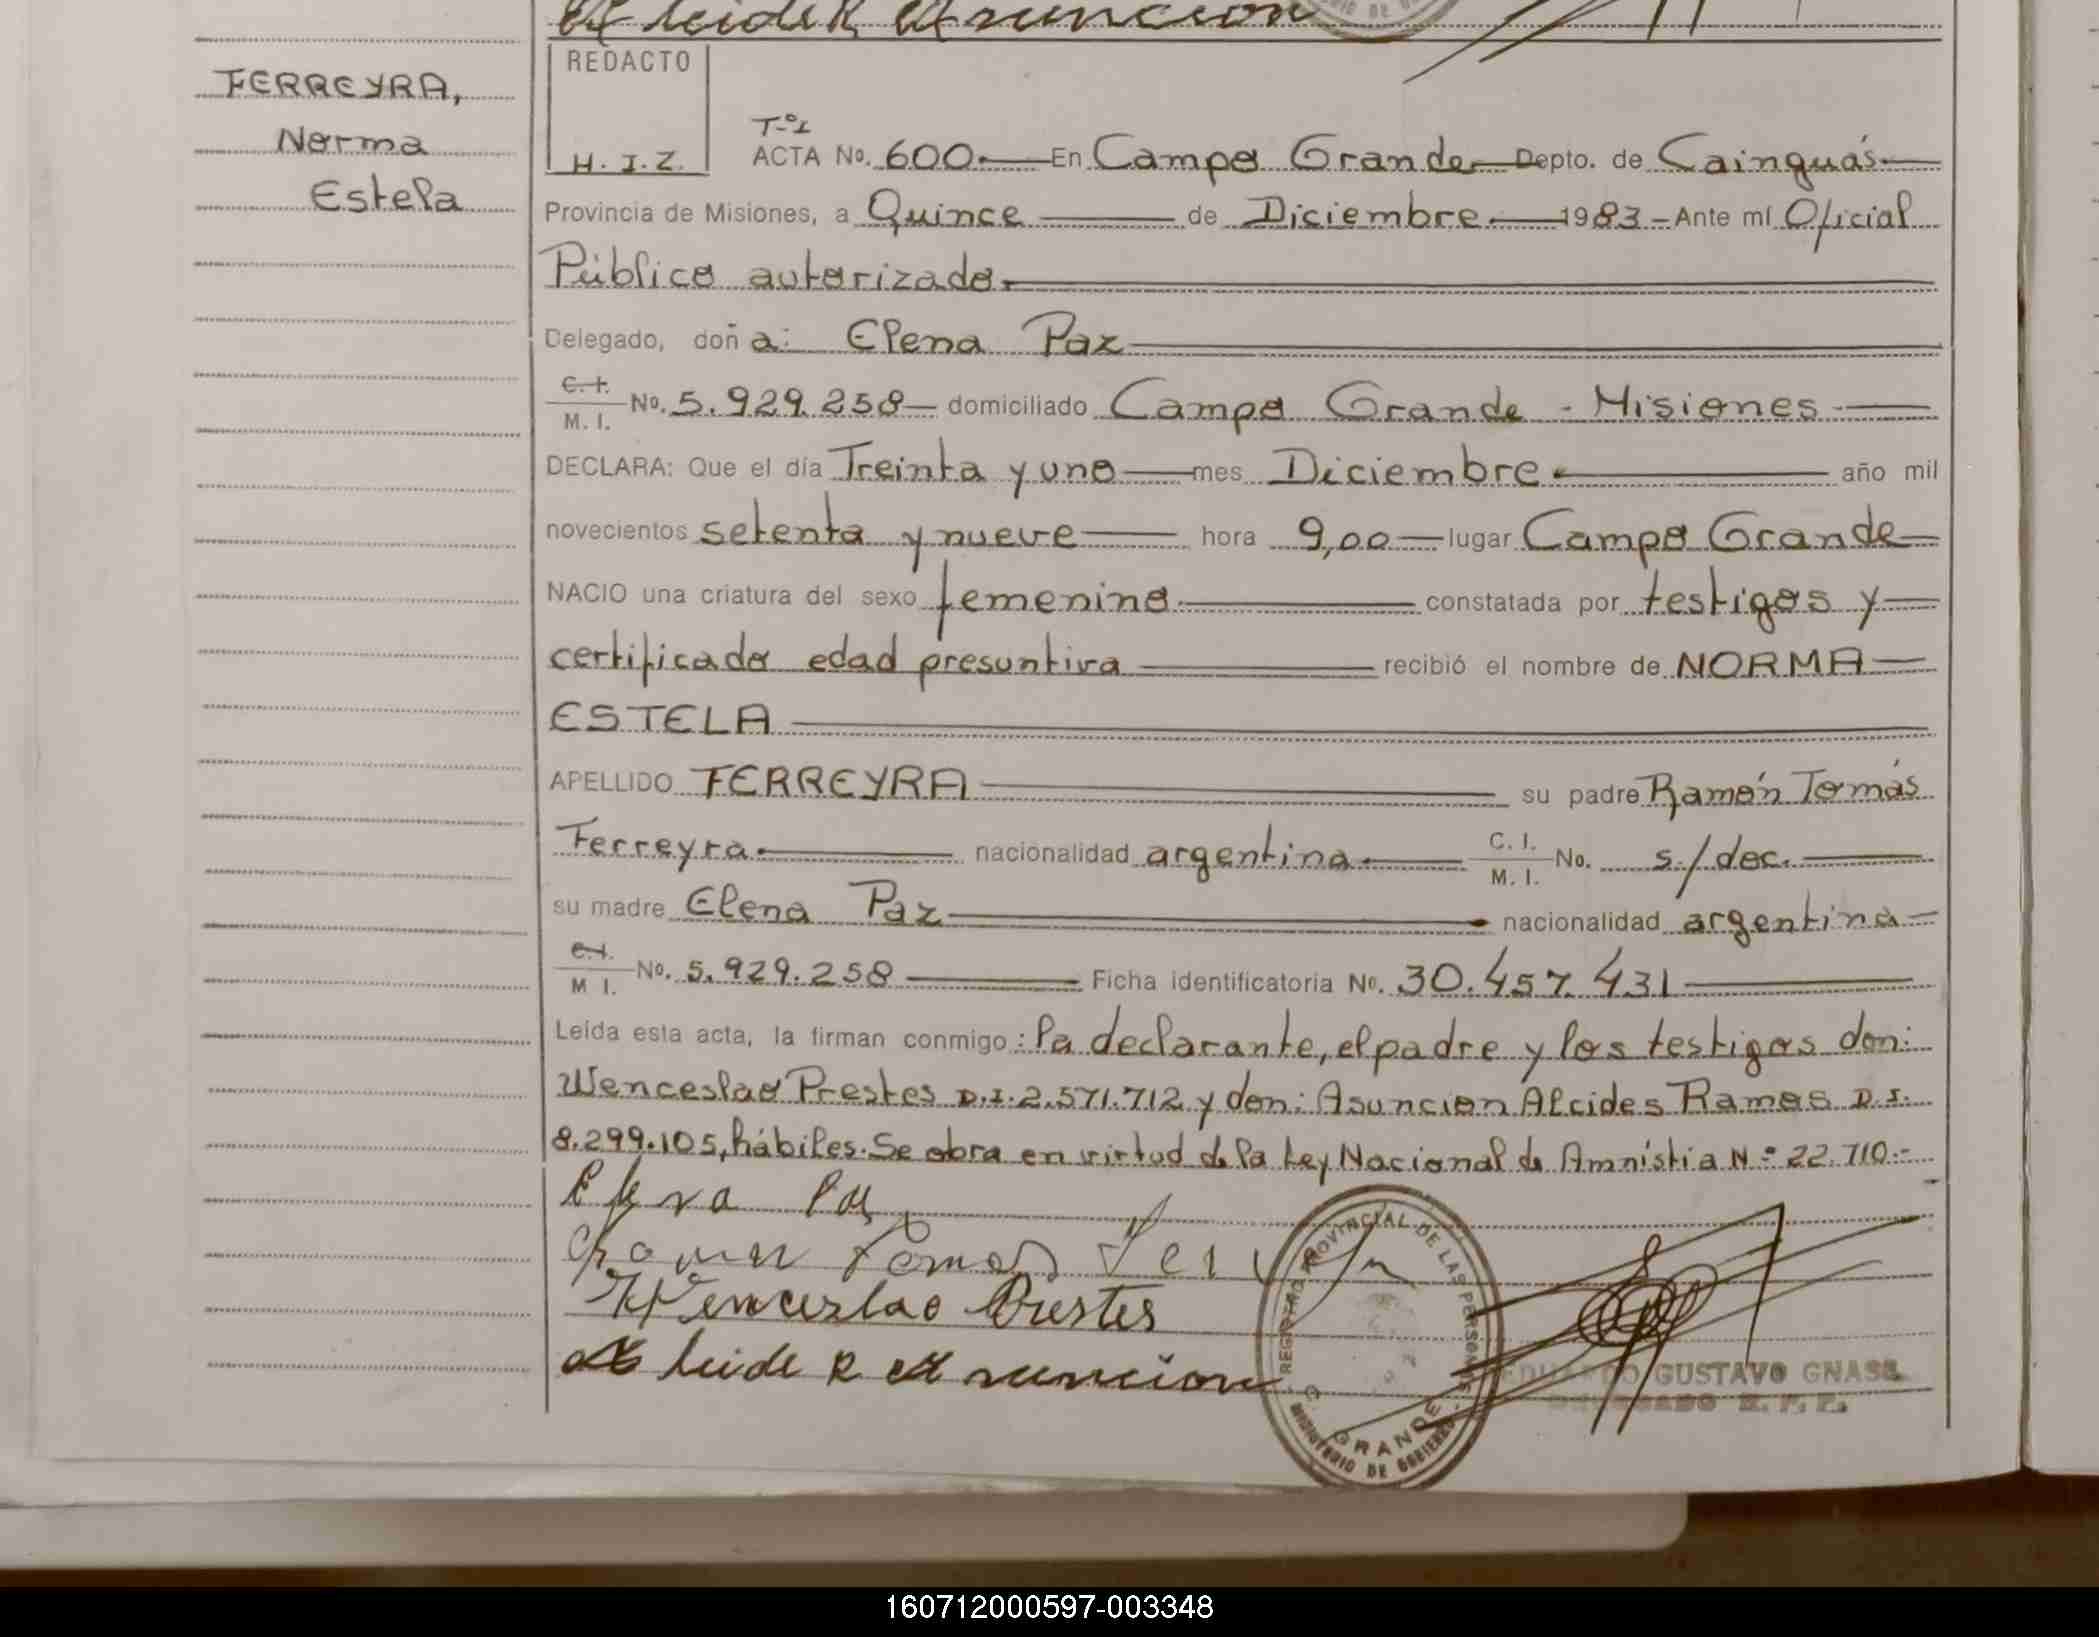 Alcide R Asuncion
FERREYRA,
Norma
Estela
REDACTO
H. I. Z.
T-º1
ACTA No. 600.— En Campo Grande— Depto. de Cainguás—
Provincia de Misiones, a Quince — de Diciembre — 1983 - Ante mí Oficial
Público autorizado.—
Delegado, doña: Elena Paz —
C. I.
M. I. No. 5.929.258 — domiciliado Campo Grande - Misiones —
DECLARA: Que el día Treinta y uno — mes Diciembre — año mil
novecientos setenta y nueve — hora 9,00 — lugar Campo Grande —
NACIO una criatura del sexo femenino — constatada por testigos y —
certificado edad presuntiva — recibió el nombre de NORMA —
ESTELA —
APELLIDO FERREYRA — su padre Ramón Tomás
Ferreyra — nacionalidad argentina — C. I. M. I. No. s./dec. —
su madre Elena Paz — nacionalidad argentina —
C. I. M I. No. 5.929.258 — Ficha identificatoria No. 30.457.431 —
Leída esta acta, la firman conmigo: la declarante, el padre y los testigos don:
Wenceslao Prestes D.I. 2.571.712 y don: Asuncion Alcides Ramos D.I.
8.299.105, hábiles. Se obra en virtud de la Ley Nacional de Amnistia Nº 22.710.-
Elena Paz
Ramon Tomas Ferreyra
Wenceslao Prestes
Alcide R Asuncion
REGISTRO PROVINCIAL DE LAS PERSONAS
GRANDE
MINISTERIO DE GOBIERNO
EDUARDO GUSTAVO GNASS
DELEGADO R. P. P.
160712000597-003348